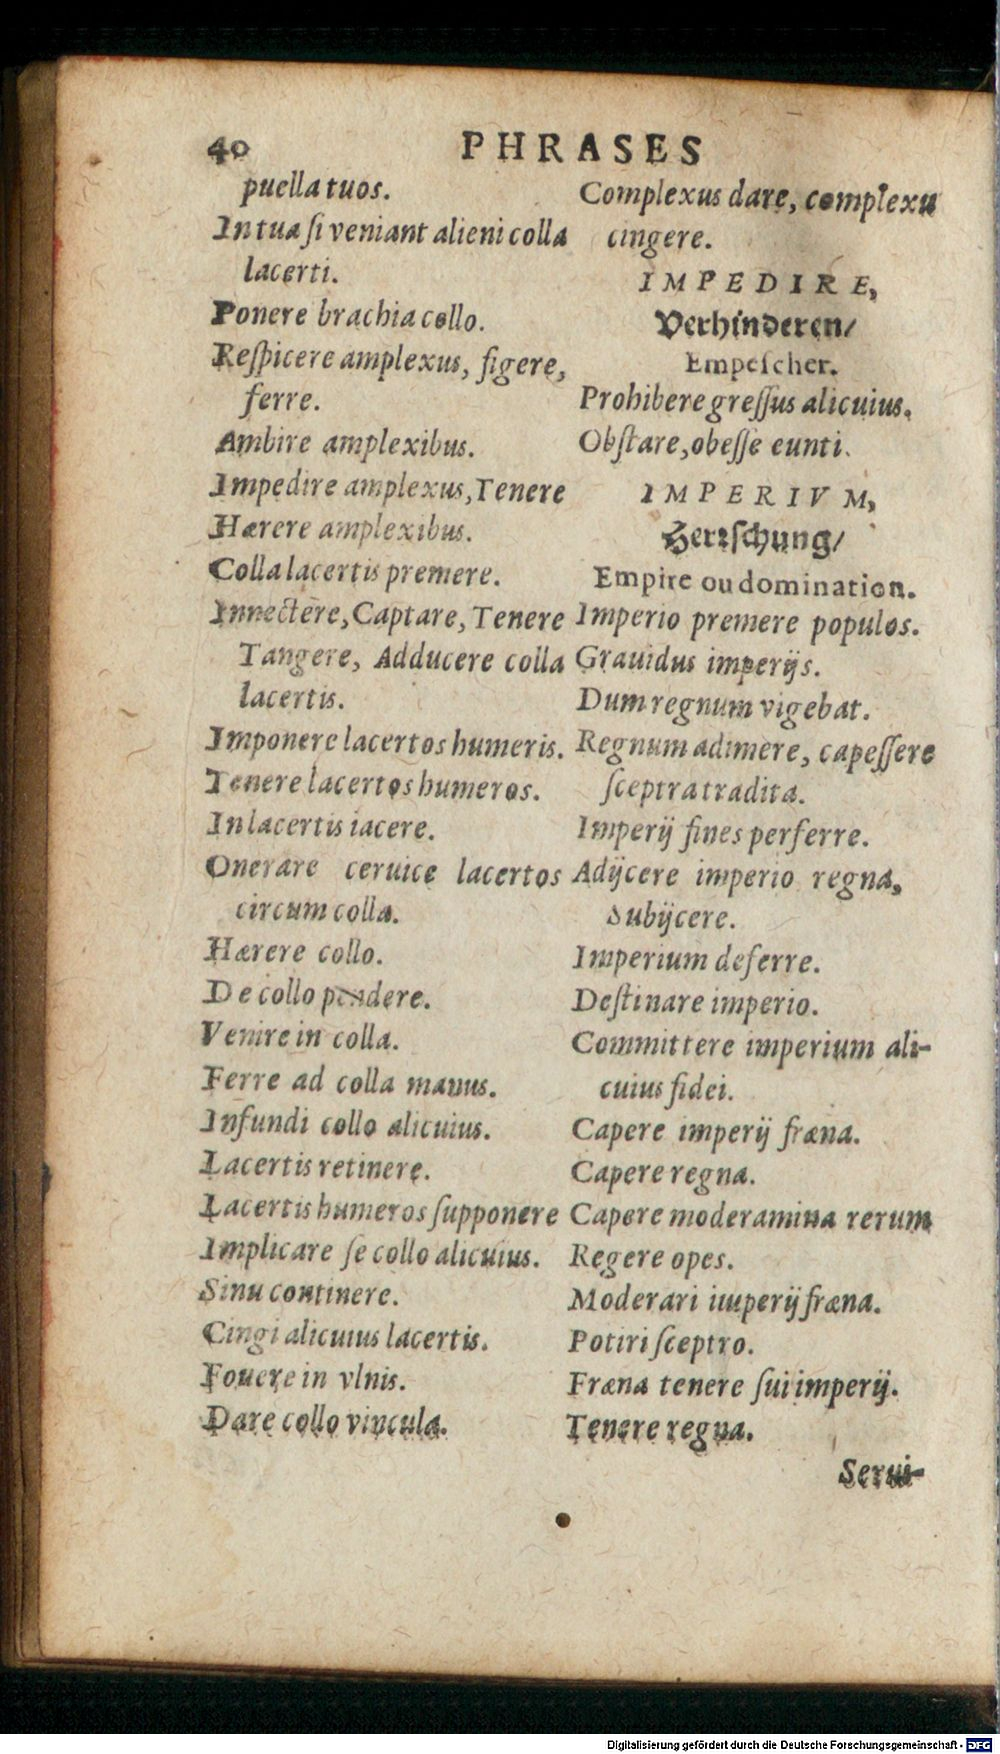 40 PHRASES
puella tuos.
In tua ſi veniant alieni colla
lacerti.
Ponere brachia collo.
Reſpicere amplexus, figere,
ferre.
Ambire amplexibus.
Impedire amplexus, Tenere
Hærere amplexibus.
Colla lacertis premere.
Innectere, Captare, Tenere
Tangere, Adducere colla
lacertis.
Imponere lacertos humeris.
Tenere lacertos humeros.
In lacertis iacere.
Onerare ceruice lacertos
circum colla.
Hærere collo.
De collo pendere.
Venire in colla.
Ferre ad colla manus.
Infundi collo alicuius.
Lacertis retinere.
Lacertis humeros ſupponere
Implicare ſe collo alicuius.
Sinu continere.
Cingi alicuius lacertis.
Fouere in vlnis.
Dare collo vincula.
Complexus dare, complexu
cingere.
IMPEDIRE,
Verhinderen/
Empeſcher.
Prohibere greſſus alicuius.
Obſtare, obeſſe eunti.
IMPERIVM,
Herꝛſchung/
Empire ou domination.
Imperio premere populos.
Grauidus imperijs.
Dum regnum vigebat.
Regnum adimere, capeſſere
ſceptra tradita.
Imperij fines perferre.
Adijcere imperio regna,
Subijcere.
Imperium deferre.
Deſtinare imperio.
Committere imperium ali-
cuius fidei.
Capere imperij fræna.
Capere regna.
Capere moderamina rerum
Regere opes.
Moderari iuuperij fræna.
Potiri ſceptro.
Fræna tenere ſui imperij.
Tenere regna.
Serui-
Digitalisierung gefördert durch die Deutsche Forschungsgemeinschaft - DFG